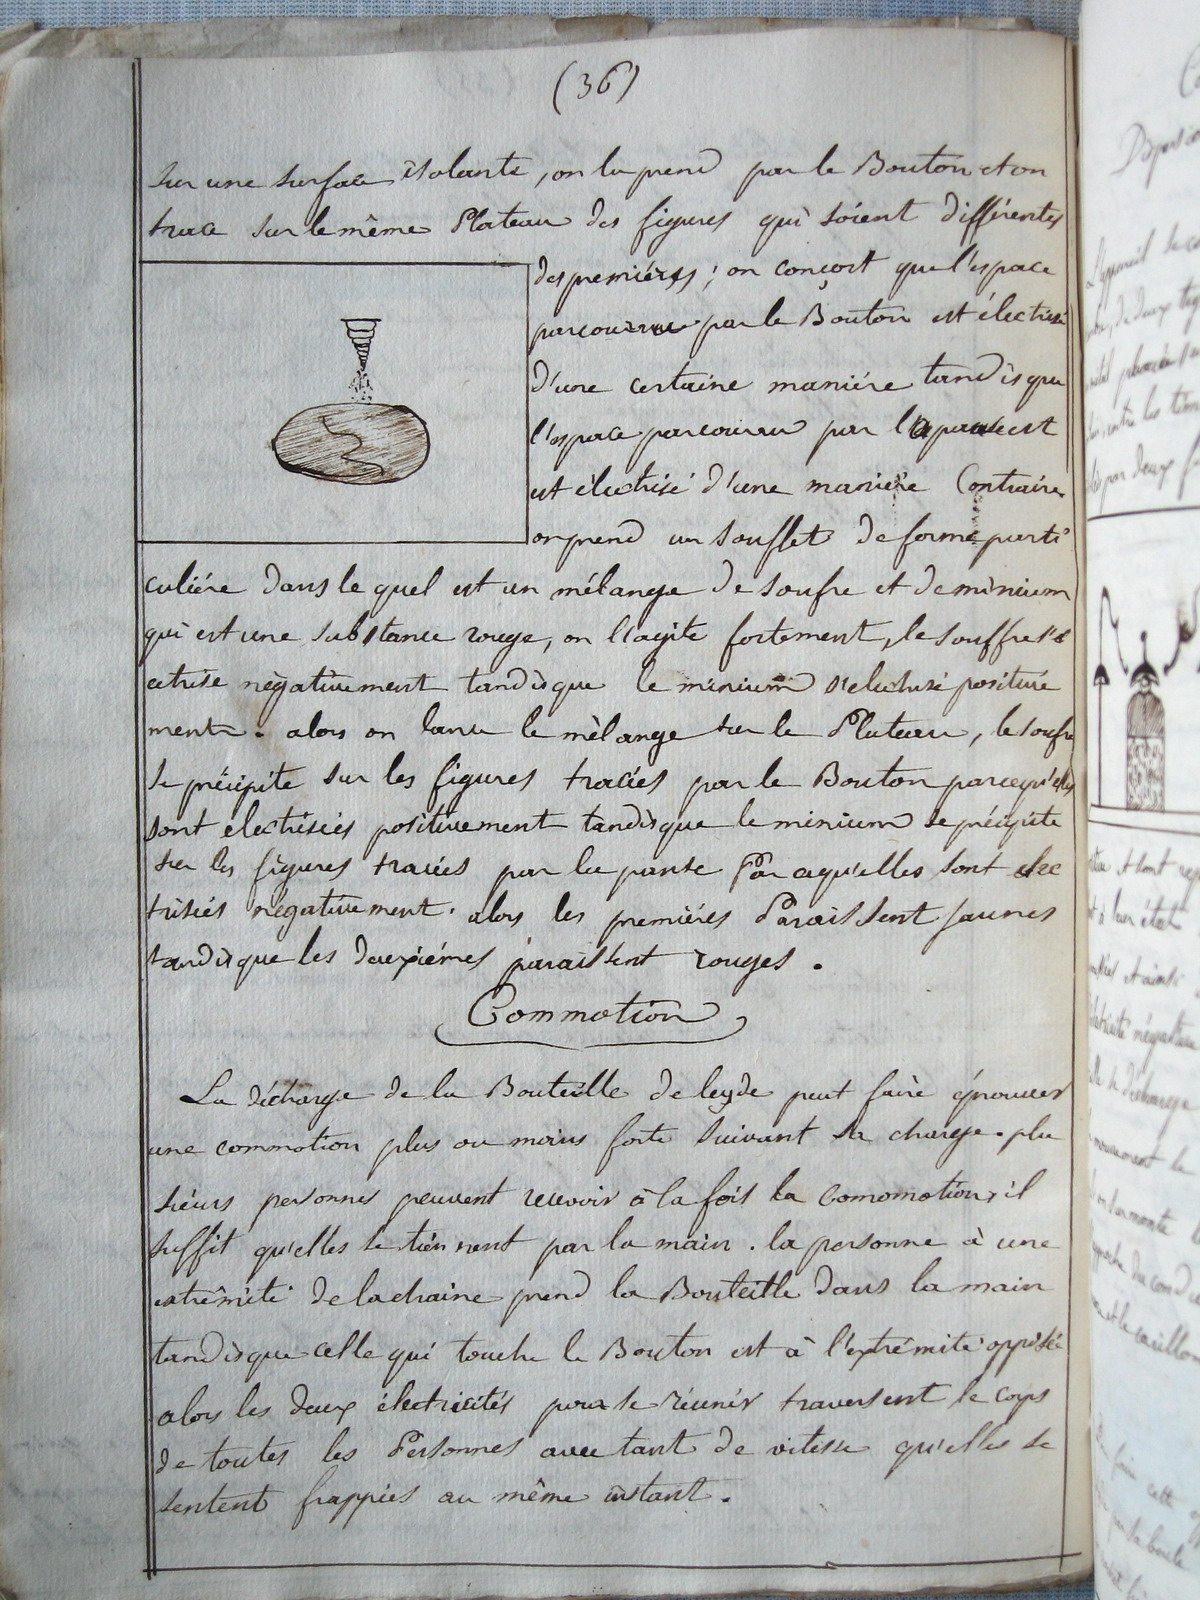 (36)
sur une surface isolante, on la prend par le Bouton et on
trace sur le même Plateau des figures qui soient différentes
des premières; on conçoit que l'espace
parcouru par le Bouton est électrisé
d'une certaine manière tandisque
l'espace parcouru par la panse est
est électrisé d'une manière Contraire
on prend un soufflet de forme parti
culière dans le quel est un mélange de soufre et de minium
qui est une substance rouge, on l'agite fortement, le souffre s'é
ectrise négativement tandisque le minium s'electrisé positive
ment. alors on lance le mélange sur le Plateau, le soufre
se précipite sur les figures tracées par le Bouton parcequ'elles
sont électrisées positivement tandisque le minium se précipite
sur les figures tracées par la panse Parcequ'elles sont elec
trisées négativement. alors les premières Paraissent jaunes
tandisque les deuxièmes paraissent rouges.
Commotion
La décharge de la Bouteille de leyde peut faire éprouver
une commotion plus ou moins forte suivant sa charge. plu
sieurs personnes peuvent recevoir à la fois la comomotion, il
suffit qu'elles se tiennent par la main. la personne à une
extrêmité de la chaine prend la Bouteille dans la main
tandisque celle qui touche le Bouton est à l'extrémité opposée
alors les deux électricités pour se réunir traversent le corps
de toutes les Personnes avec tant de vitesse qu'elles se
sentent frappées au même instant.